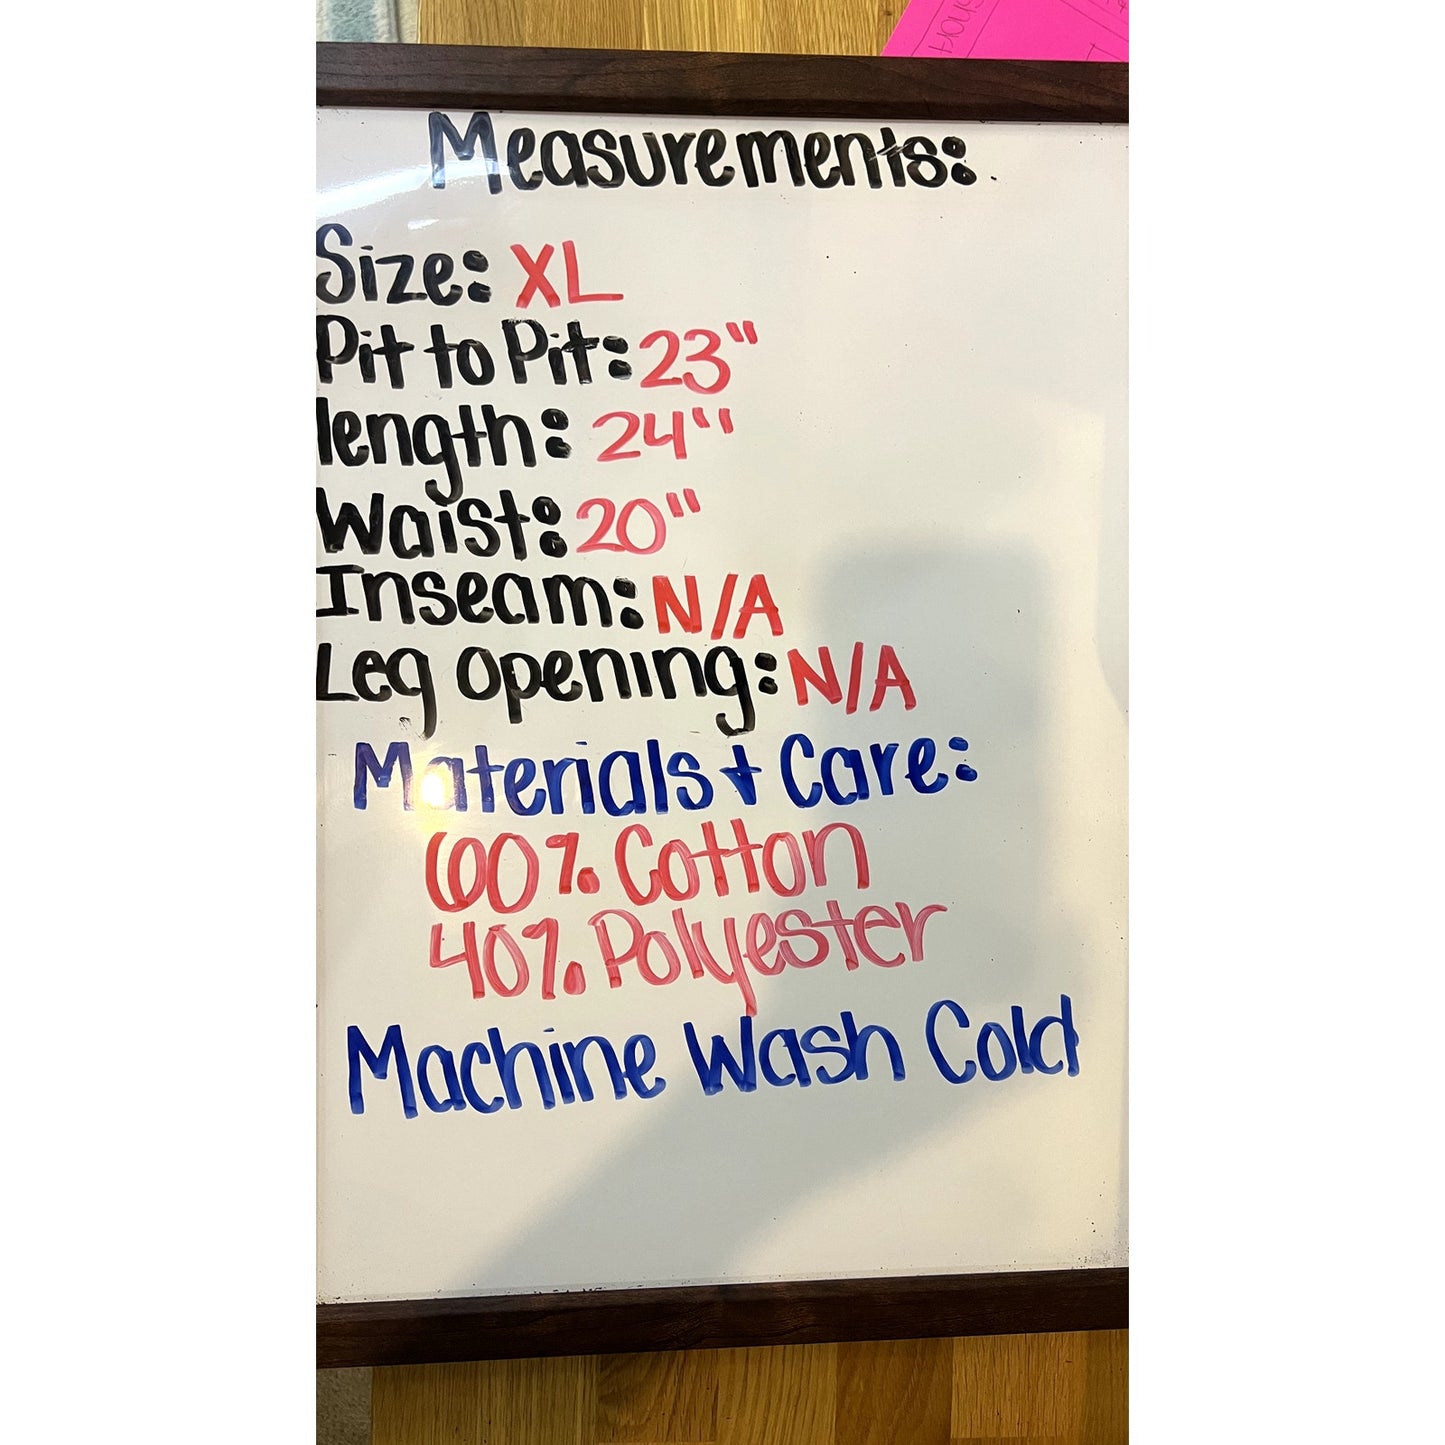 Short
Measurements:
Size: XL
Pit to Pit: 23"
length: 24"
Waist: 20"
Inseam: N/A
Leg opening: N/A
Materials + Care:
60% Cotton
40% Polyester
Machine Wash Cold